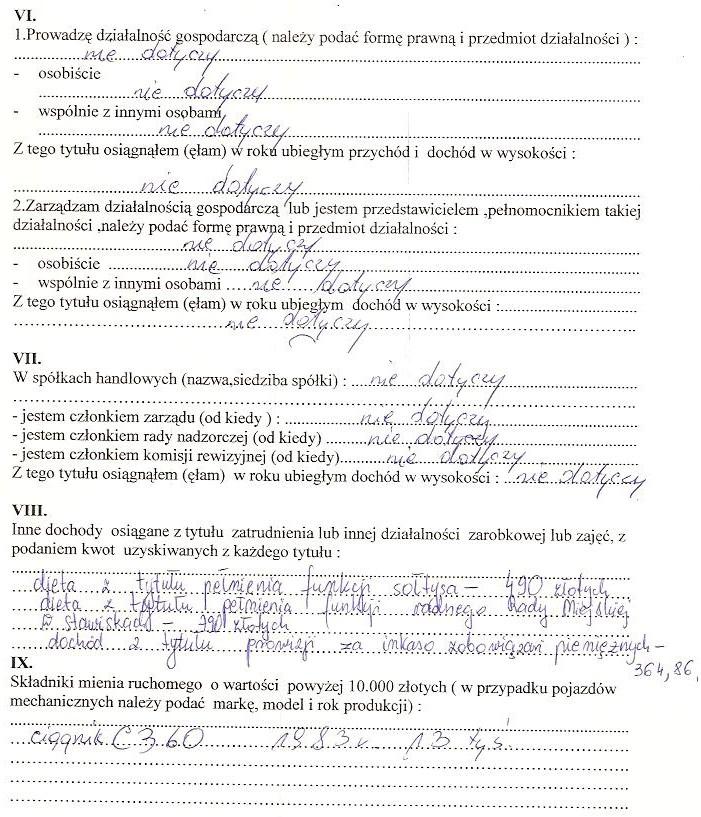 VI.
1.Prowadzę działalność gospodarczą ( należy podać formę prawną i przedmiot działalności ) :
nie dotyczy
- osobiście
nie dotyczy
- wspólnie z innymi osobami
nie dotyczy
Z tego tytułu osiągnąłem (ęłam) w roku ubiegłym przychód i dochód w wysokości :
nie dotyczy
2.Zarządzam działalnością gospodarczą lub jestem przedstawicielem ,pełnomocnikiem takiej
działalności ,należy podać formę prawną i przedmiot działalności :
nie dotyczy
- osobiście nie dotyczy
- wspólnie z innymi osobami nie dotyczy
Z tego tytułu osiągnąłem (ęłam) w roku ubiegłym dochód w wysokości :
nie dotyczy
VII.
W spółkach handlowych (nazwa,siedziba spółki) : nie dotyczy
- jestem członkiem zarządu (od kiedy ) : nie dotyczy
- jestem członkiem rady nadzorczej (od kiedy) nie dotyczy
- jestem członkiem komisji rewizyjnej (od kiedy) nie dotyczy
Z tego tytułu osiągnąłem (ęłam) w roku ubiegłym dochód w wysokości : nie dotyczy
VIII.
Inne dochody osiągane z tytułu zatrudnienia lub innej działalności zarobkowej lub zajęć, z
podaniem kwot uzyskiwanych z każdego tytułu :
dieta z tytułu pełnienia funkcji sołtysa – 490 złotych
dieta z tytułu pełnienia funkcji radnego Rady Miejskiej
w Stawiskach – złotych
dochód z tytułu prowizji za inkaso zobowiązań pieniężnych –
364,86,
IX.
Składniki mienia ruchomego o wartości powyżej 10.000 złotych ( w przypadku pojazdów
mechanicznych należy podać markę, model i rok produkcji) :
ciągnik C 360 1983 r. 13 tyś.